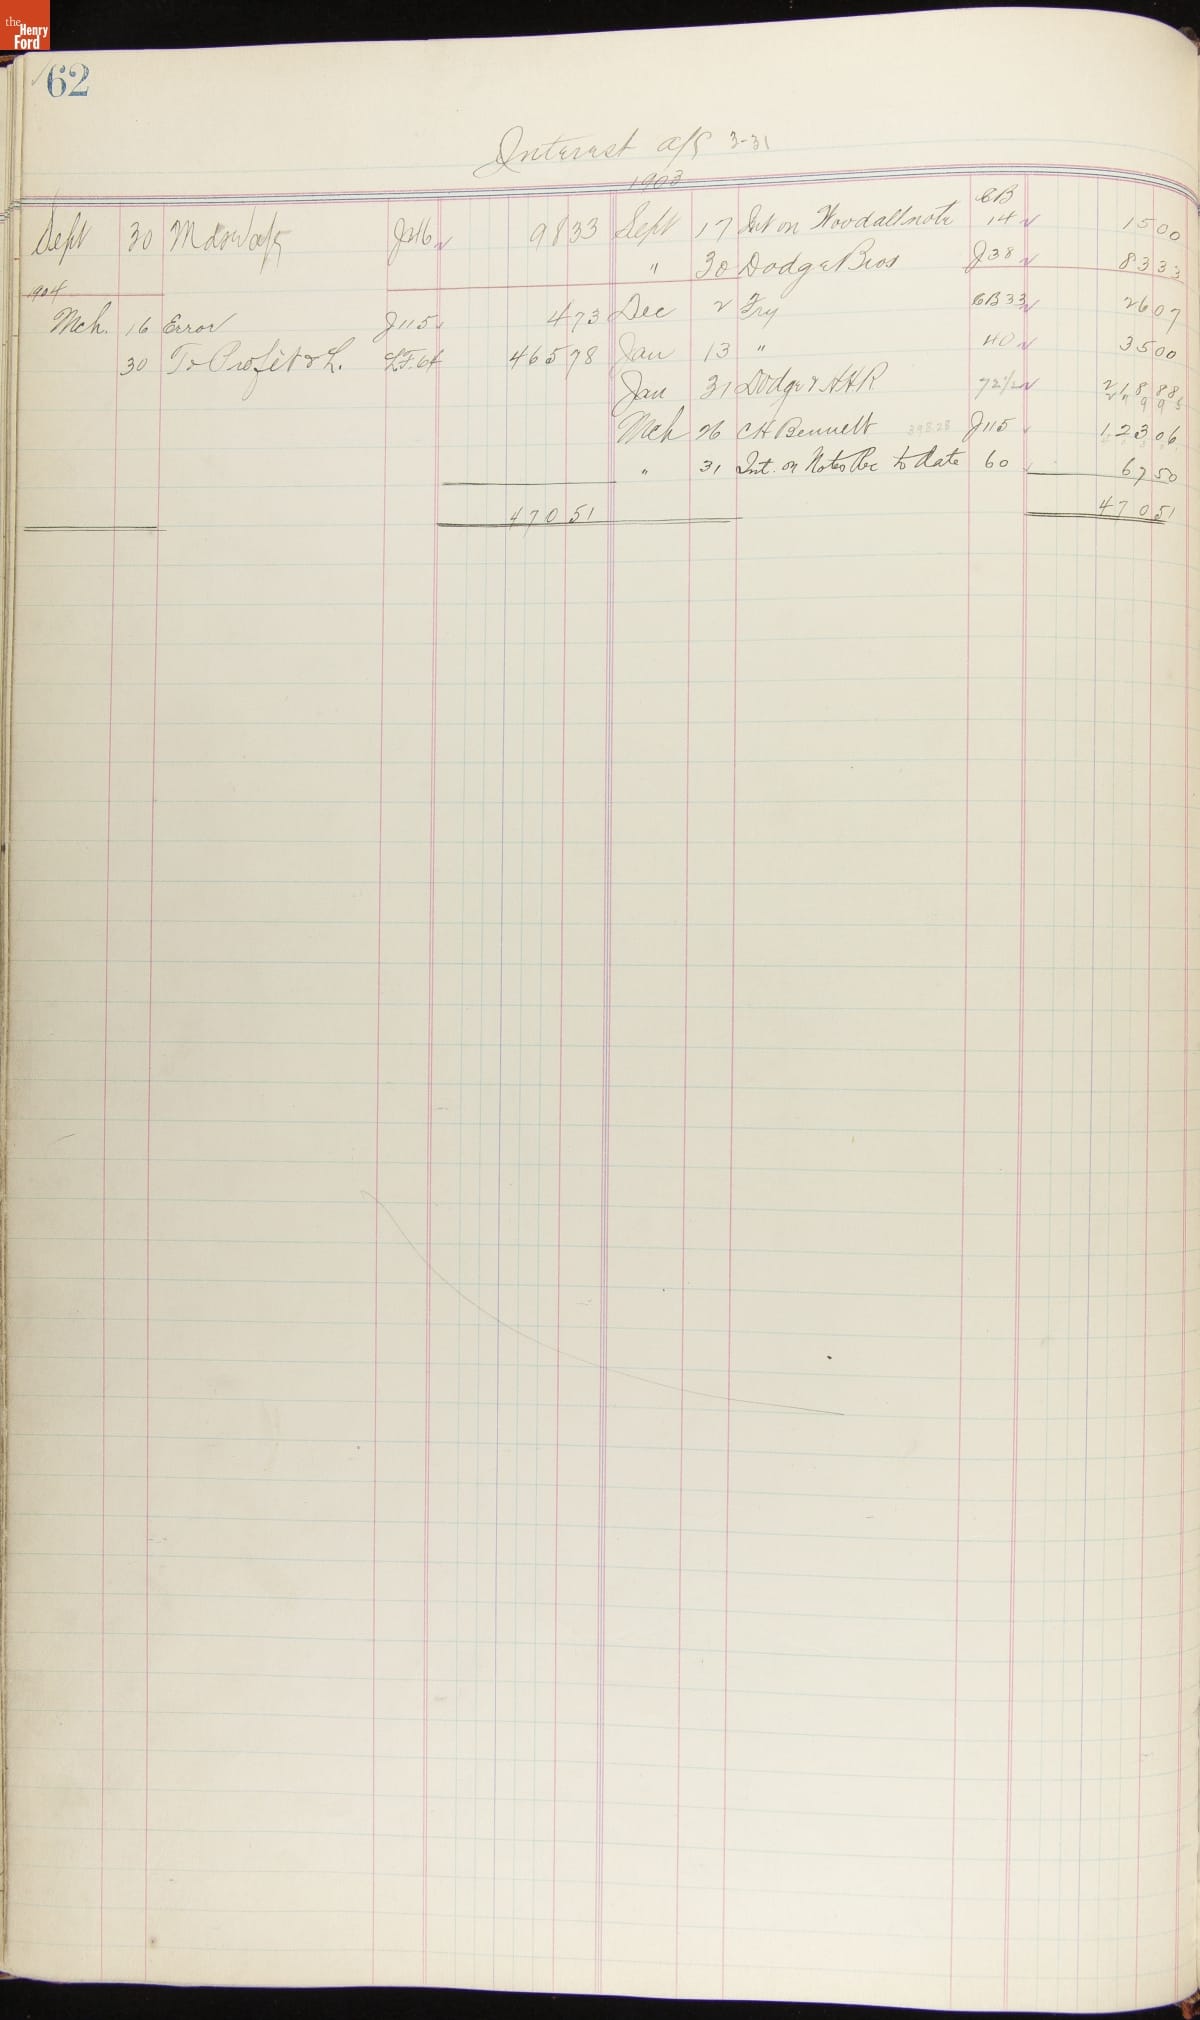 the Henry Ford
62
Interest a/c 3-31
1903
Sept 30 Mdse a/c J 46 98 33
Sept 17 Int on Woodall note CB 14 15 00
" 30 Dodge Bros J 38 83 33
1904
Mch. 16 Error J 115 4 73
Dec 2 Fry CB 33 26 07
30 To Profit & L. LF. 64 465 78
Jan 13 " 40 35 00
Jan 31 Dodge & 72½ 218 88
Mch 26 CH Bennett 398 28 J 115 123 06
" 31 Int. on Notes Rec to date 60 67 50
470 51
470 51